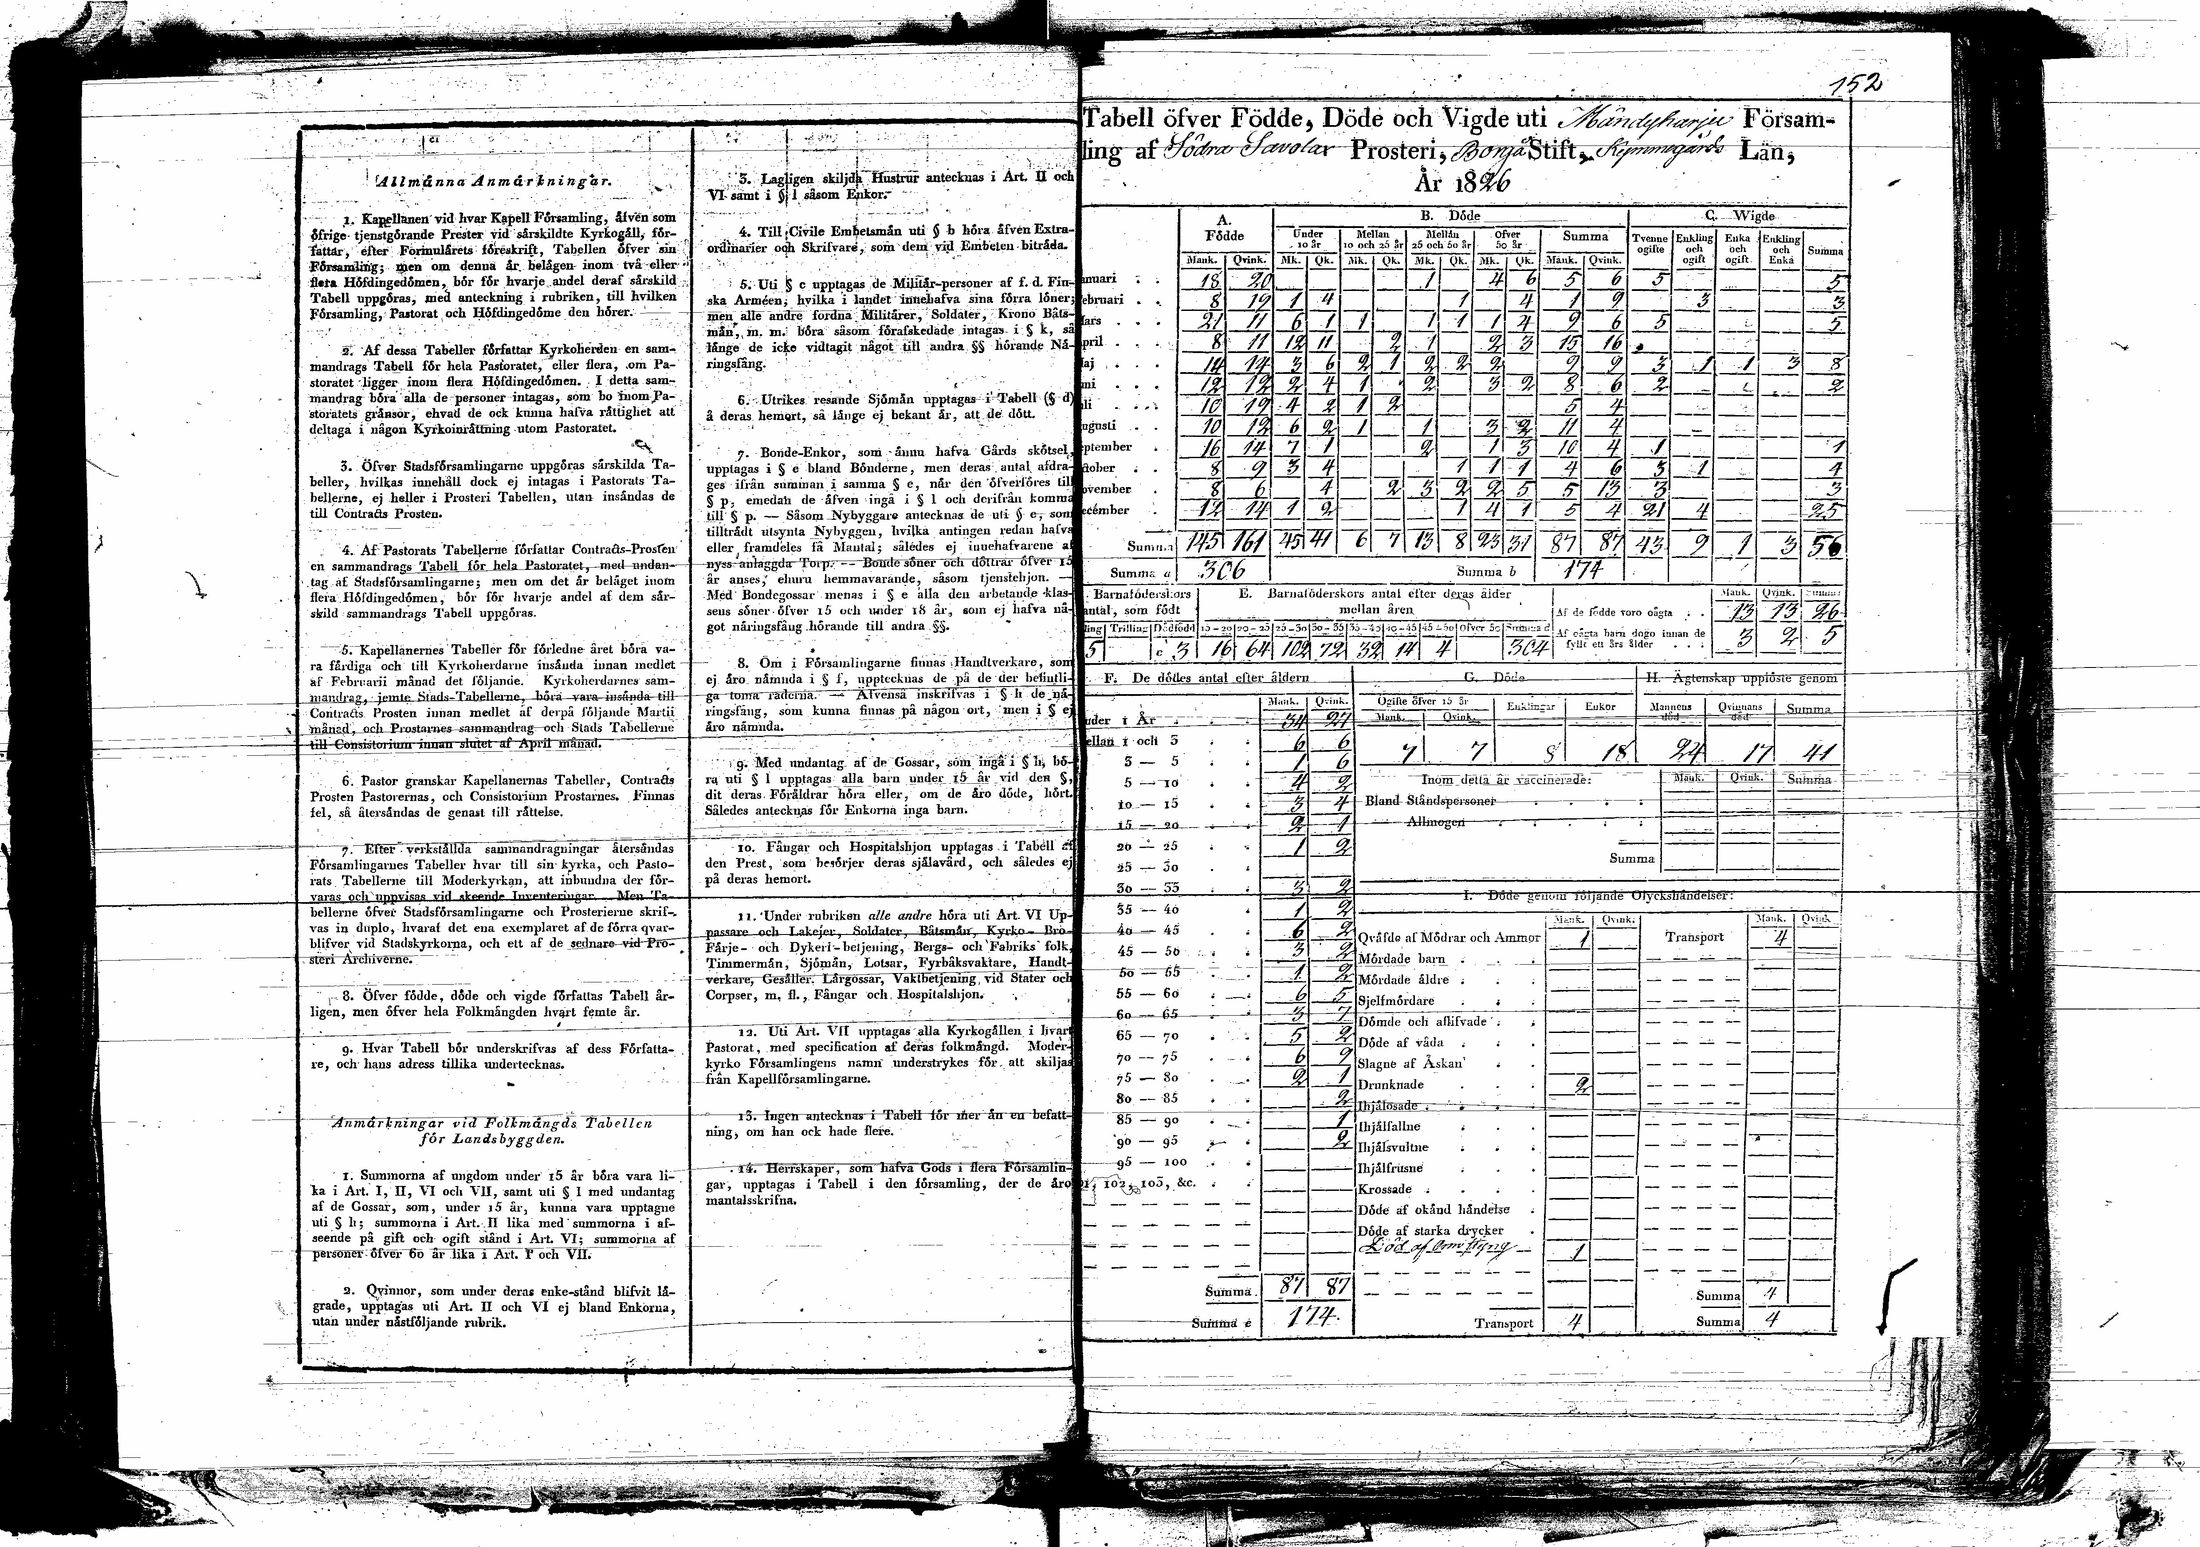 Allmänna Anmärkningar.
1. Kapellanen vid hvar Kapell Församling, äfven som
öfrige tjenstgörande Prester vid särskildte Kyrkogäll, för-
fattar, efter Formulärets föreskrift, Tabellen öfver sin
Församling; men om denna är belägen inom två eller
flera Höfdingedömen, bör för hvarje andel deraf särskild
Tabell uppgöras, med anteckning i rubriken, till hvilken
Församling, Pastorat och Höfdingedöme den hörer.
2. Af dessa Tabeller författar Kyrkoherden en sam-
mandrags Tabell för hela Pastoratet, eller flera, om Pa-
storatet ligger inom flera Höfdingedömen. I detta sam-
mandrag böra alla de personer intagas, som bo inom Pa-
storatets gränsor, ehvad de ock kunna hafva rättighet att
deltaga i någon Kyrkoinrättning utom Pastoratet.
3. Öfver Stadsförsamlingarne uppgöras särskilda Ta-
beller, hvilkas innehåll dock ej intagas i Pastorats Ta-
bellerne, ej heller i Prosteri Tabellen, utan insändas de
till Contracts Prosten.
4. Af Pastorats Tabellerne författar Contracts-Prosten
en sammandrags Tabell för hela Pastoratet, med undan-
tag af Stadsförsamlingarne; men om det är beläget inom
flera Höfdingedömen, bör för hvarje andel af dem sär-
skild sammandrags Tabell uppgöras.
5. Kapellanernes Tabeller för förledne året böra va-
ra färdiga och till Kyrkoherdarne insända innan medlet
af Februarii månad det följande. Kyrkoherdarnes sam-
mandrag, jemte Stads-Tabellerne, böra vara insända till
Contracts Prosten innan medlet af derpå följande Martii
månad, och Prostarnes sammandrag och Stads Tabellerne
till Consistorium innan slutet af April månad.
6. Pastor granskar Kapellanernas Tabeller, Contracts
Prosten Pastorernas, och Consistorium Prostarnes. Finnas
fel, så återsändas de genast till rättelse.
7. Efter verkställda sammandragningar återsändas
Församlingarnes Tabeller hvar till sin kyrka, och Pasto-
rats Tabellerne till Moderkyrkan, att inbundna der för-
varas och uppvisas vid skeende Inventeringar. Men Ta-
bellerne öfver Stadsförsamlingarne och Prosterierne skrif-
vas in duplo, hvaraf det ena exemplaret af de förra qvar-
blifver vid Stadskyrkorna, och ett af de sednare vid Pro-
steri Archiverne.
8. Öfver födde, döde och vigde författas Tabell år-
ligen, men öfver hela Folkmängden hvart femte år.
9. Hvar Tabell bör underskrifvas af dess Författa-
re, och hans adress tillika undertecknas.
Anmärkningar vid Folkmängds Tabellen
för Landsbyggden.
1. Summorna af ungdom under 15 år böra vara li-
ka i Art. I, II, VI och VII, samt uti § l med undantag
af de Gossar, som, under 15 år, kunna vara upptagne
uti § h; summorna i Art. II lika med summorna i af-
seende på gift och ogift stånd i Art. VI; summorna af
personer öfver 60 år lika i Art. I och VII.
2. Qvinnor, som under deras enke-stånd blifvit lä-
grade, upptagas uti Art. II och VI ej bland Enkorna,
utan under nästföljande rubrik.
3. Lagligen skiljda Hustrur antecknas i Art. II och
VI samt i § l såsom Enkor.
4. Till Civile Embetsmän uti § b höra äfven Extra-
ordinarier och Skrifvare, som dem vid Embeten biträda.
5. Uti § c upptagas de Militär-personer af f. d. Fin-
ska Arméen, hvilka i landet innehafva sina förra löner;
men alle andre fordna Militärer, Soldater, Krono Båts-
män, m. m. böra såsom förafskedade intagas i § k, så
länge de icke vidtagit något till andra §§ hörande Nä-
ringsfång.
6. Utrikes resande Sjömän upptagas i Tabell (§ d)
å deras hemort, så länge ej bekant är, att de dött.
7. Bonde-Enkor, som ännu hafva Gårds skötsel,
upptagas i § e bland Bönderne, men deras antal afdra-
ges ifrån summan i samma § e, når den öfverföres till
§ p, emedan de äfven ingå i § l och derifrån komma
till § p. — Såsom Nybyggare antecknas de uti § e, som
tillträdt utsynta Nybyggen, hvilka antingen redan hafva
eller framdeles få Mantal; således ej innehafvarene af
nyss anlaggda Torp. — Bonde söner och döttrar öfver 15
år anses, ehuru hemmavarande, såsom tjenstehjon. —
Med Bondegossar menas i § e alla den arbetande klas-
sens söner öfver 15 och under 18 år, som ej hafva nå-
got näringsfång hörande till andra §§.
8. Om i Församlingarne finnas Handtverkare, som
ej äro nämnda i § f, upptecknas de på de der befintli-
ga toma raderna. — Äfvenså inskrifvas i § h de nä-
ringsfång, som kunna finnas på någon ort, men i § ej
äro nämnda.
9. Med undantag af de Gossar, som ingå i § h, bö-
ra uti § l upptagas alla barn under 15 år vid den §,
dit deras Föräldrar höra eller, om de äro döde, hört.
Således antecknas för Enkorna inga barn.
10. Fångar och Hospitalshjon upptagas i Tabell af
den Prest, som besörjer deras själavård, och således ej
på deras hemort.
11. Under rubriken alle andre höra uti Art. VI Up-
passare och Lakejer, Soldater, Båtsmän, Kyrko- Bro-
Färje- och Dykeri-betjening, Bergs- och Fabriks folk,
Timmermän, Sjömän, Lotsar, Fyrbåksvaktare, Handt-
verkare, Gesäller, Lärgossar, Vaktbetjening vid Stater och
Corpser, m. fl., Fångar och Hospitalshjon.
12. Uti Art. VII upptagas alla Kyrkogällen i hvart
Pastorat, med specification af deras folkmängd. Moder-
kyrko Församlingens namn understrykes för att skiljas
från Kapellförsamlingarne.
13. Ingen antecknas i Tabell för mer än en befatt-
ning, om han ock hade flere.
14. Herrskaper, som hafva Gods i flera Församlin-
gar, upptagas i Tabell i den församling, der de äro
mantalsskrifna.
152
Tabell öfver Födde, Döde och Vigde uti Mändyharju Försam-
ling af Södra Savolax Prosteri, Borgå Stift, Kymmegårds Län,
År 1826
A. Födde B. Döde C. Wigde
Under 10 år Mellan 10 och 25 år Mellan 25 och 50 år Öfver 50 år Summa Tvenne ogifte Enkling och ogift Enka och ogift Enkling och Enka Summa
Mank. Qvink. Mk. Qk. Mk. Qk. Mk. Qk. Mk. Qk. Mank. Qvink.
anuari 18 20 1 4 6 5 6 5 5
ebruari 8 19 1 4 1 4 1 9 3 3
ars 21 11 6 1 1 1 1 1 4 9 6 5 5
pril 8 11 12 11 2 1 2 3 15 16
aj 14 14 3 6 2 1 2 2 2 9 9 3 1 1 3 8
ni 12 12 2 4 1 2 3 2 8 6 2 2
li 10 19 4 2 1 2 5 4
ugusti 10 12 6 2 1 1 3 2 11 4
eptember 16 14 7 1 2 1 3 10 4 1 1
ctober 8 9 3 4 1 1 1 4 6 3 1 4
ovember 8 6 4 2 3 2 2 5 5 13 3 3
ecember 12 14 1 2 1 4 1 5 4 21 4 25
Summa 145 161 45 41 6 7 13 8 23 31 87 87 43 9 1 3 56
Summa a 306 Summa b 174
Barnaföderskors antal, som födt
E. Barnaföderskors antal efter deras ålder mellan åren
ling Trilling Dödfödd 15-20 20-25 25-30 30-35 35-40 40-45 45-50 Öfver 50 Summa d
5 c 3 16 64 102 72 32 14 4 304
Mank. Qvink. Summa
Af de födde voro oägta 13 13 26
Af oägta barn dogo innan de fyllt ett års ålder 3 2 5
F. De dödes antal efter åldern
Mank. Qvink.
nder 1 År 34 27
ellan 1 och 3 6 6
3 — 5 1 6
5 — 10 4 2
10 — 15 3 4
15 — 20 2 1
20 — 25 1 2
25 — 30
30 — 35 3 2
35 — 40 1 2
40 — 45 6 2
45 — 50 3 2
50 — 55 1 2
55 — 60 6 5
60 — 65 3 7
65 — 70 5 2
70 — 75 6 9
75 — 80 2 1
80 — 85 2
85 — 90 1
90 — 95 2
95 — 100
102, 103, &c.
Summa 87 87
Summa e 174.
G. Döde
Ogifte öfver 15 år Enklingar Enkor
Mank. Qvink.
7 7 8 18
H. Ägtenskap upplöste genom
Mannens död Qvinnans död Summa
24 17 41
Inom detta år vaccinerade: Mank. Qvink. Summa
Bland Ståndspersoner
Allmogen
Summa
I. Döde genom följande Olyckshändelser:
Mank. Qvink. Mank. Qvink.
Qväfde af Mödrar och Ammor 1 Transport 4
Mördade barn
Mördade äldre
Sjelfmördare
Dömde och aflifvade
Döde af våda
Slagne af Åskan
Drunknade 2
Ihjälosade
Ihjälfallne
Ihjälsvultne
Ihjälfrusne
Krossade
Döde af okänd händelse
Döde af starka drycker
Död af Orm styng 1
Summa 4
Transport 4 Summa 4